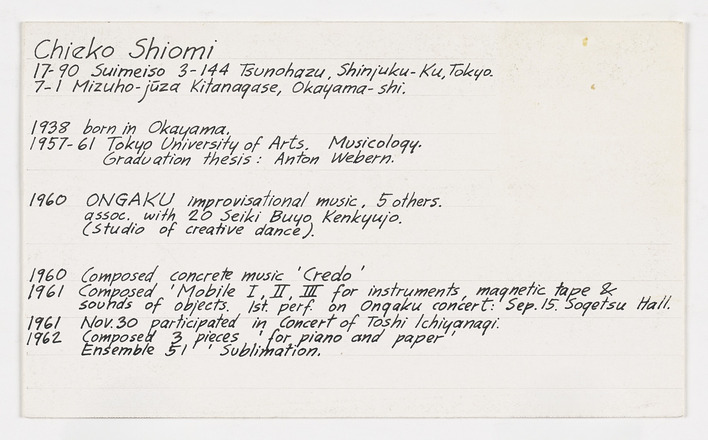 Chieko Shiomi
17-90 Suimeiso 3-144 Tsunohazu, Shinjuku-Ku, Tokyo.
7-1 Mizuho-jūza Kitanagase, Okayama-shi.
1938 born in Okayama.
1957-61 Tokyo University of Arts. Musicology.
Graduation thesis: Anton Webern.
1960 ONGAKU improvisational music, 5 others.
assoc. with 20 Seiki Buyo Kenkyujo.
(studio of creative dance).
1960 Composed concrete music 'Credo'
1961 Composed 'Mobile I, II, III for instruments, magnetic tape &
sounds of objects. 1st. perf. on Ongaku concert: Sep. 15. Sogetsu Hall.
1961 Nov. 30 participated in Concert of Toshi Ichiyanagi.
1962 Composed 3 pieces 'for piano and paper'
Ensemble 51' 'Sublimation.